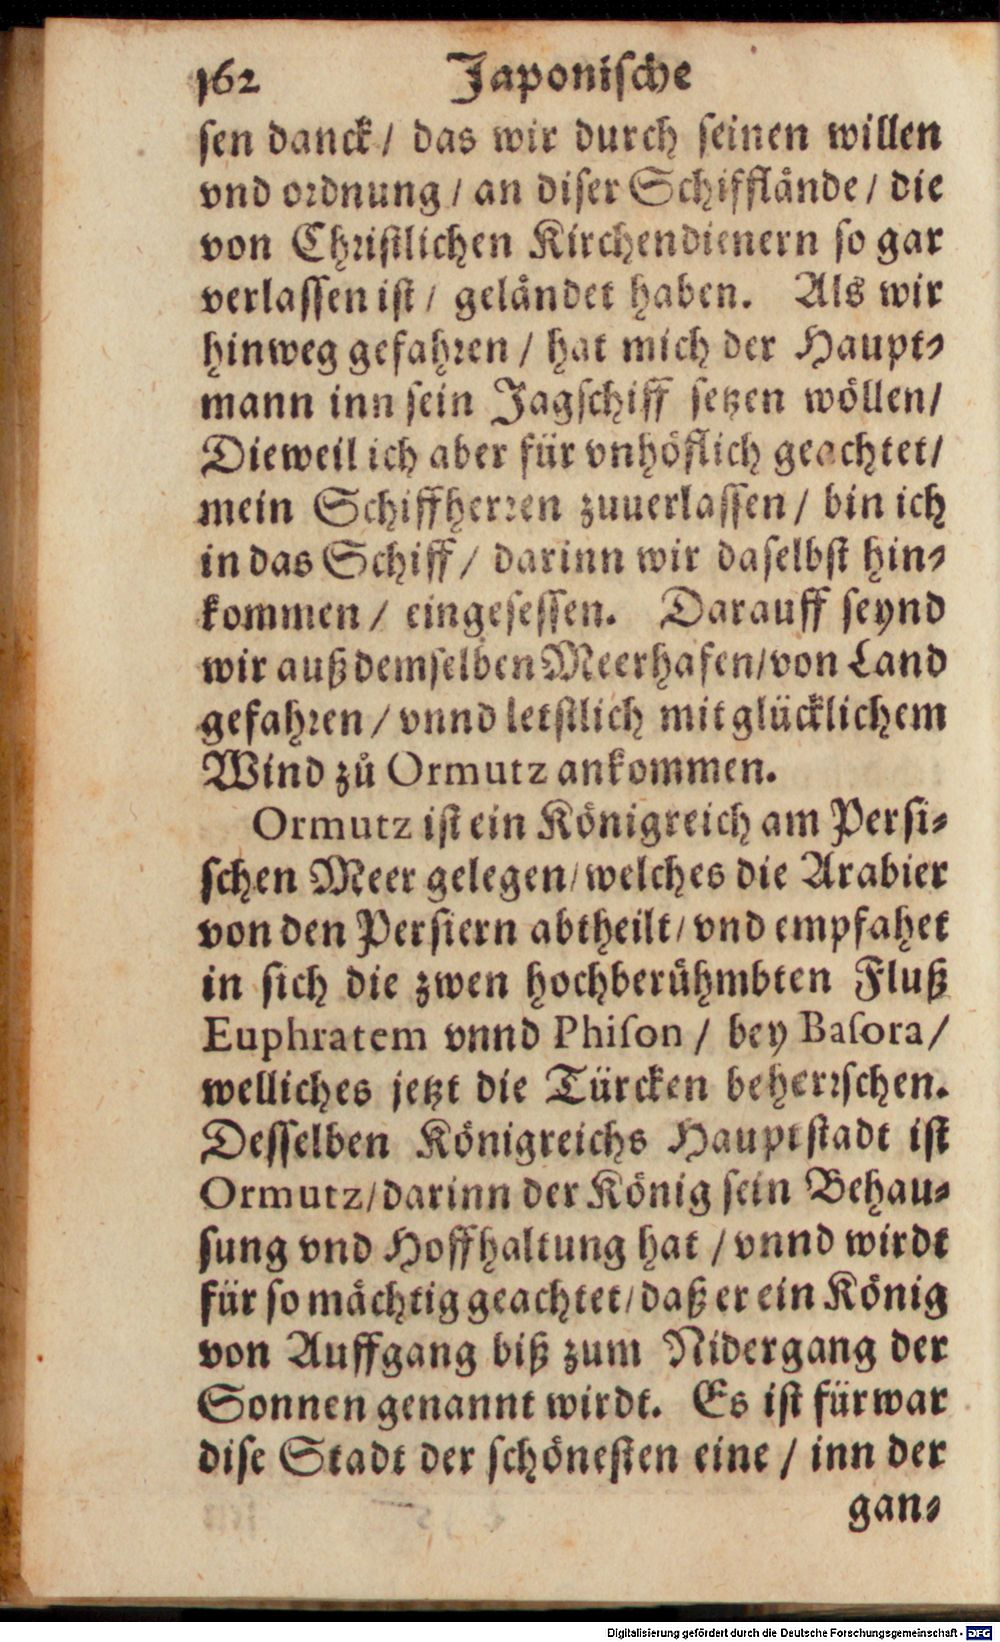 162 Japonische
sen danck / das wir durch seinen willen
vnd ordnung / an diser Schifflånde / die
von Christlichen Kirchendienern so gar
verlassen ist / gelåndet haben. Als wir
hinweg gefahren / hat mich der Haupt-
mann inn sein Jagschiff setzen wöllen /
Dieweil ich aber für vnhöflich geachtet /
mein Schiffherren zuuerlassen / bin ich
in das Schiff / darinn wir daselbst hin-
kommen / eingesessen. Darauff seynd
wir auß demselben Meerhafen / von Land
gefahren / vnnd letstlich mit glücklichem
Wind zů Ormutz ankommen.
Ormutz ist ein Königreich am Persi-
schen Meer gelegen / welches die Arabier
von den Persiern abtheilt / vnd empfahet
in sich die zwen hochberühmbten Fluß
Euphratem vnnd Phison / bey Basora /
welliches jetzt die Türcken beherrschen.
Desselben Königreichs Hauptstadt ist
Ormutz / darinn der König sein Behau-
sung vnd Hoffhaltung hat / vnnd wirdt
für so måchtig geachtet / daß er ein König
von Auffgang biß zum Nidergang der
Sonnen genannt wirdt. Es ist fürwar
dise Stadt der schönesten eine / inn der
gan-
Digitalisierung gefördert durch die Deutsche Forschungsgemeinschaft - DFG